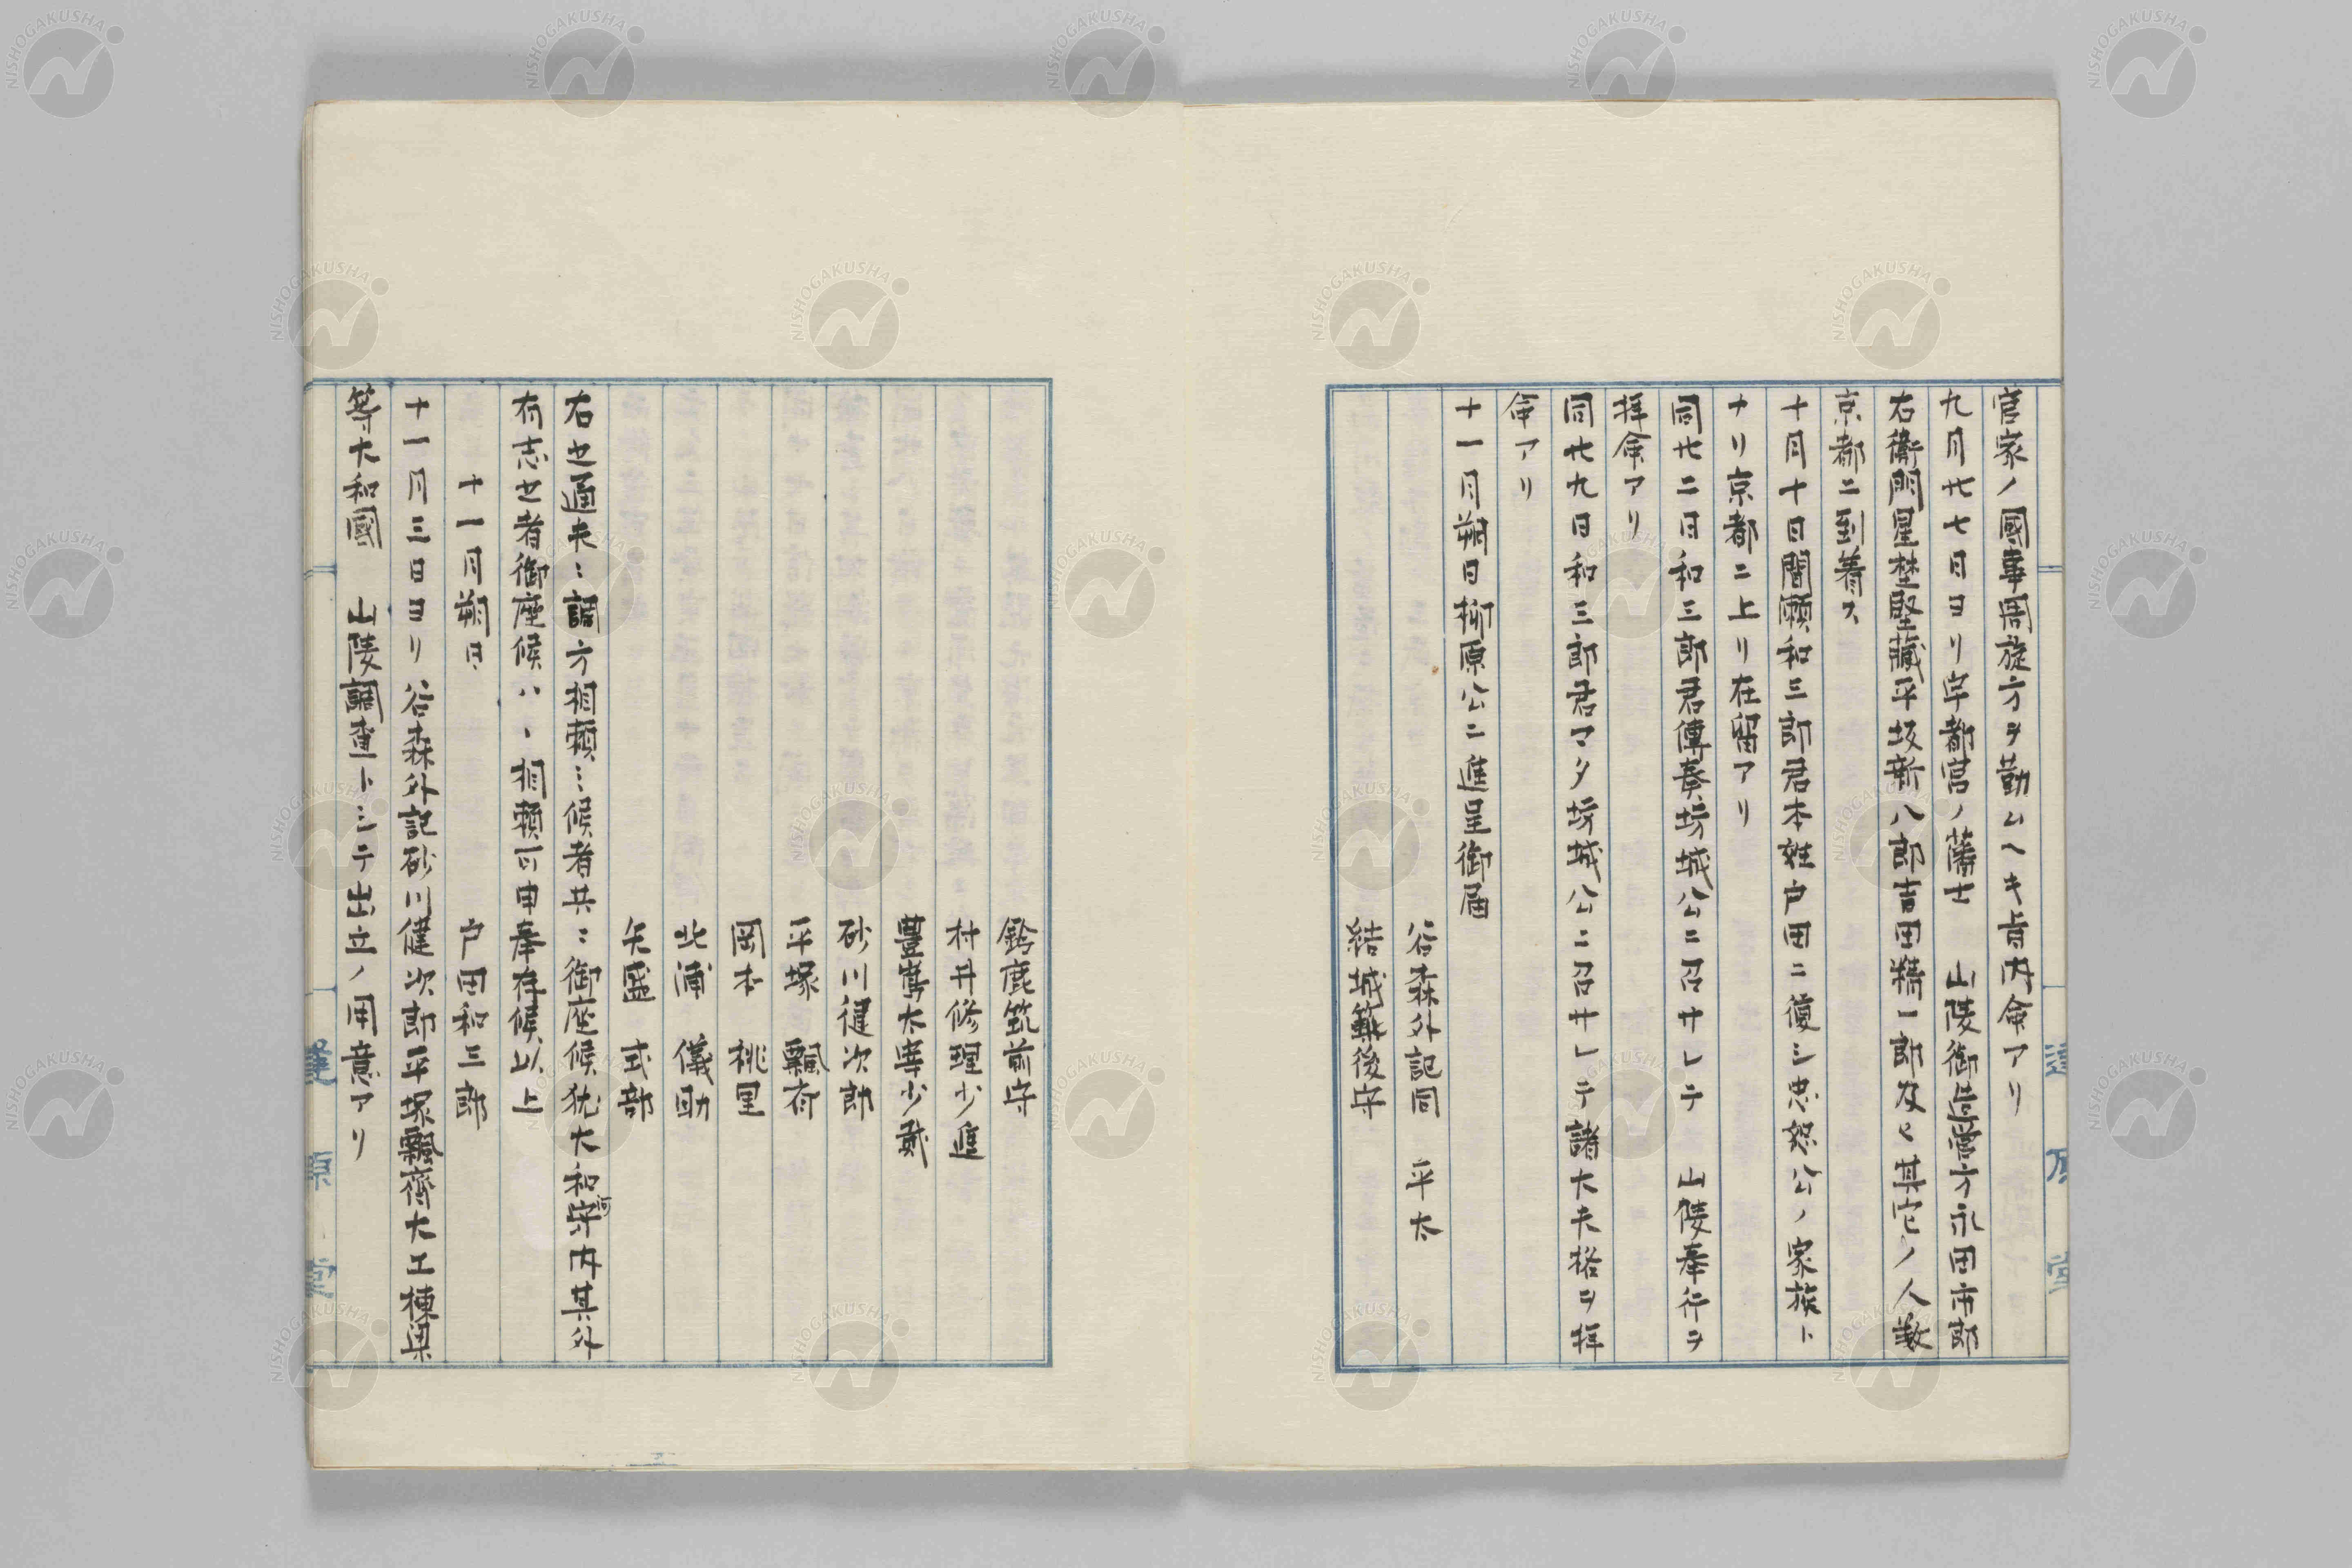 官家ノ國事周旋方ヲ勤ムヘキ旨内命アリ
九月廿七日ヨリ宇都宮ノ藩士　山陵御造営方永田市郎
右衛門星埜堅藏平坂新八郎吉田精一郎及ヒ其它ノ人数
京都ニ到着ス
十月十日間瀬和三郎君本姓戸田ニ復シ忠恕公ノ家族ト
ナリ京都ニ上リ在留アリ
同廿二日和三郎君傳奏坊城公ニ召サレテ　山陵奉行ヲ
拝命アリ
同廿九日和三郎君マタ坊城公ニ召サレテ諸大夫格ヲ拝
命アリ
十一月朔日柳原公ニ進呈御届
谷森外記同　平太
結城筑後守
鈴鹿筑前守
村井修理少進
豊嶌太宰少貳
砂川健次郎
平塚　飄斎
岡本　桃里
北浦　儀助
矢盛　式部
右せ通夫〻調方相頼〻候者共〻御座候犹大和守河内其外
有志せ者御座候ハヽ相頼可申奉存候以上
十一月朔日　戸田和三郎
十一月三日ヨリ谷森外記砂川健次郎平塚飄齋大工棟梁
等大和國　山陵調査トシテ出立ノ用意アリ
NISHOGAKUSHA